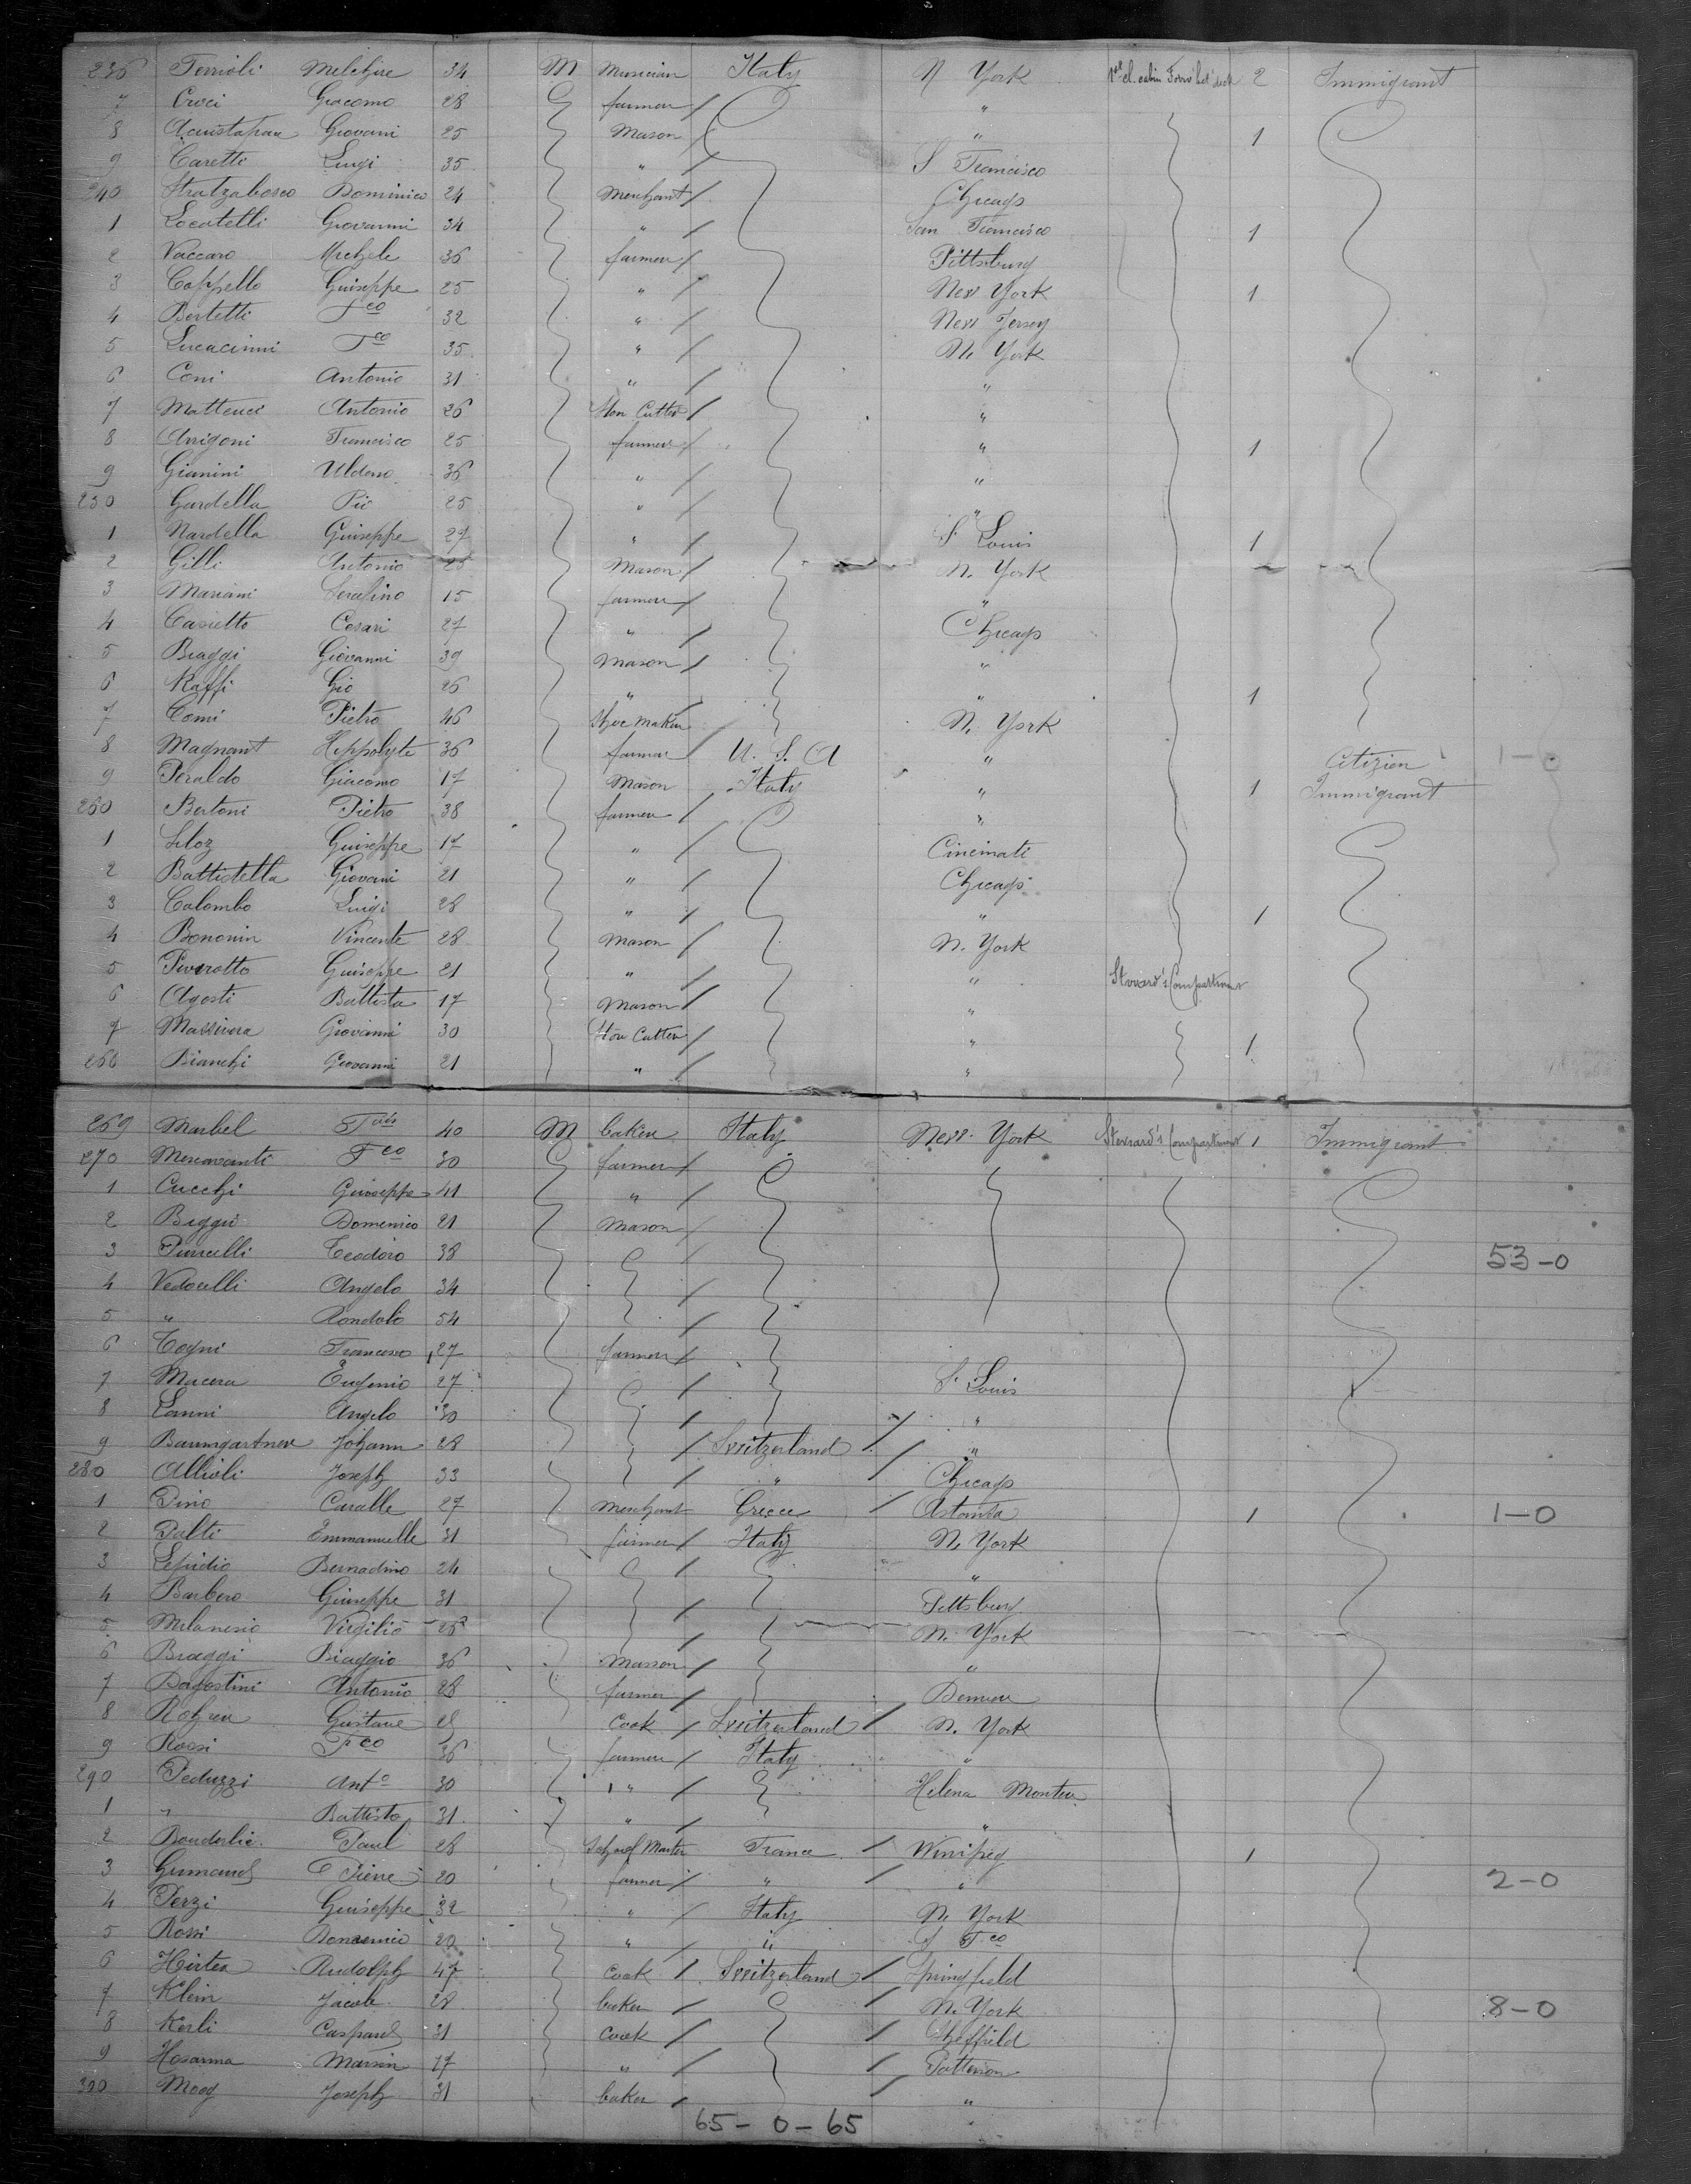 236 Terrioli Melchire 34 M Musician Italy N York 1st cl. cabin Forw'd deck 2 Immigrant
7 Croci Giacomo 28 farmer "
8 Giovani 25 Mason " 1
9 Caretti Luigi 35 " S Francisco
240 Stratzabosco Dominico 24 Merchant Chicago
1 Locatelli Giovanni 34 " San Francisco 1
2 Vaccaro Michele 36 farmer Pittsburg
3 Cappello Guiseppe 25 " New York 1
4 Bertetti Fco 32 " New Jersey
5 Lucacinni Fco 35 " N. York
6 Coni Antonio 31 " "
7 Matteuci Antonio 26 Ston Cutter "
8 Arrigoni Francisco 25 farmer " 1
9 Gianini 36 " "
250 Gardella Pio 25 " "
1 Nardella Guiseppe 27 " S Louis 1
2 Gilli Antonio 25 Mason N. York
3 Mariani Serafino 15 farmer "
4 Casietto Cesari 27 " Chicago
5 Biaggi Giovanni 39 Mason "
6 Raffi Gio 26 " " 1
7 Comi Pietro 46 Shoe Maker N. York
8 Magnant Hippolyte 36 farmer U. S. A " Citizien 1-0
9 Peraldo Giacomo 17 Mason Italy " 1 Immigrant
260 Bertoni Pietro 38 farmer "
1 Guiseppe 17 " Cincinati
2 Battistella Giovani 21 " Chicago
3 Colombo Luigi 28 " " 1
4 Bononin Vincente 28 Mason N. York
5 Piverotto Guiseppe 21 " " Steward's Compartment
6 Agosti Battista 17 Mason "
7 Massivera Giovanni 30 Ston Cutter " 1
268 Bianchi Giovanni 21 " "
269 Marbel Fois 40 M baker Italy New York Steward's Compartment 1 Immigrant
270 Mercavanti Fco 30 farmer
1 Cucchi Guiseppe 41 "
2 Beggio Domenico 21 Mason
3 Purcelli Teodoro 38 53-0
4 Vedovelli Angelo 34
5 " Rondolo 54
6 Togni Francesco 27 farmer
7 Macera Eugenio 27 S. Louis
8 Lanni Angelo 30 "
9 Baumgartner Johann 28 Switzerland "
280 Allioli Joseph 33 " Chicago
1 Dino Caralle 27 Merchant Grece Astonia 1 1-0
2 Dalti Emmanuelle 31 farmer Italy N. York
3 Lepidio Bernadino 24 "
4 Barbero Giuseppe 31 Pittsburg
5 Milanesio Virgilio 28 N. York
6 Biaggi Biaggio 36 Masson "
7 Dagostini Antonio 28 farmer Denver
8 Rohrer Gustave 28 Cook Switzerland N. York
9 Rossi Fco 36 farmer Italy "
290 Peduzzi Anto 30 " Helena Monten
1 " Battista 31 " "
2 Bouderlie Paul 28 School Master France Winipeg 1
3 Grimaud Pierre 20 farmer " " 2-0
4 Perzi Guiseppe 32 " Italy N. York
5 Rossi Domenico 20 " " S Fco
6 Hirter Rudolph 47 Cook Switzerland Springfield
7 Klein Jacob 28 baker N. York 8-0
8 Kerli Caspard 31 Cook Sheffield
9 Hosanna Martin 17 " Patterson
300 Moog Joseph 31 baker "
65-0-65